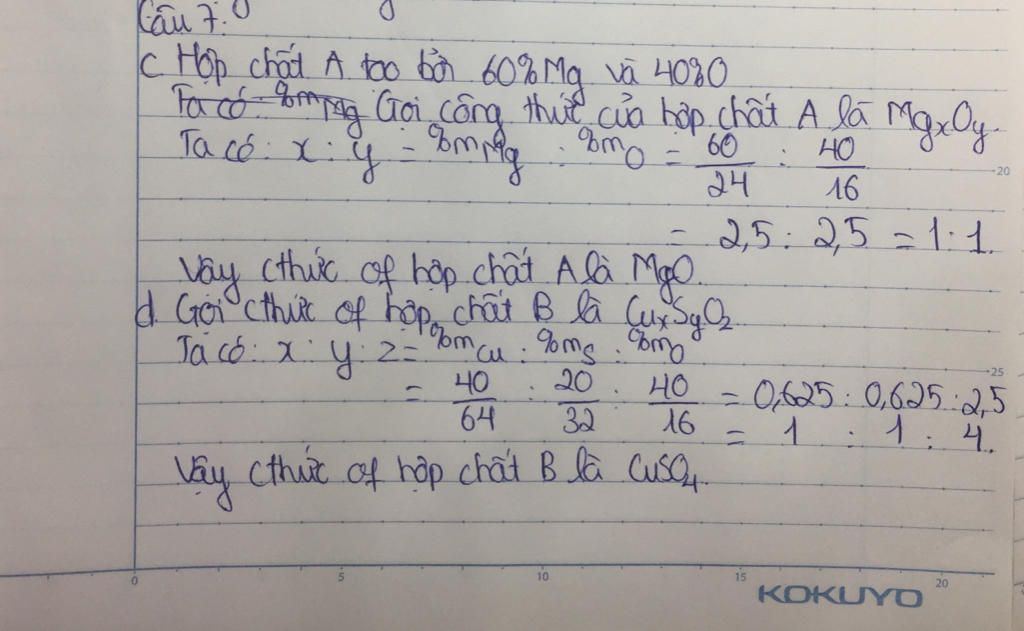 Câu 7:
c Hợp chất A tạo bởi 60%Mg và 40%O
Ta có: %mMg Gọi công thức của hợp chất A là MgxOy.
Ta có: x : y = %mMg : %mO = 60/24 : 40/16
20
= 2,5 : 2,5 = 1:1.
Vậy cthức of hợp chất A là MgO.
d. Gọi cthức of hợp chất B là CuxSyOz
Ta có: x : y : z = %mCu : %mS : %mO
25
= 40/64 : 20/32 : 40/16 = 0,625 : 0,625 : 2,5
= 1 : 1 : 4.
Vậy cthức of hợp chất B là CuSO4.
0 5 10 15 20
KOKUYO